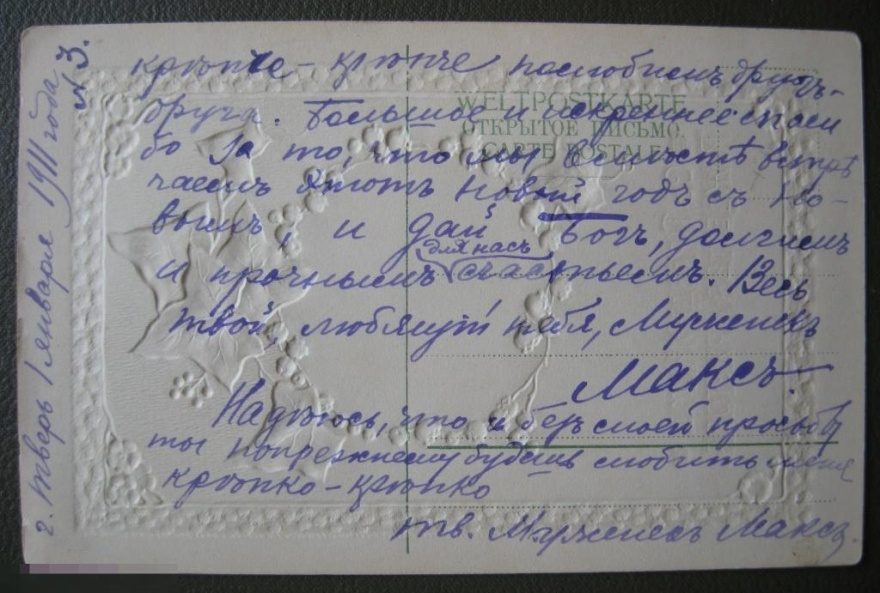 № 3.
крѣпче - крѣпче полюбимъ другъ-
друга. Большое и искреннее спаси
бо за то, что мы вмѣстѣ встрѣ
чаемъ этотъ новый годъ съ но-
вымъ, и дай Богъ, долгимъ
для насъ
и прочнымъ счастьемъ. Весь
твой, любящій тебя,
Максъ.
Надѣюсь, что и безъ моей просьбы
ты попрежнему будешь любить меня
крѣпко - крѣпко
тв. Максъ.
г. Тверь 1 января 1911 года
WELTPOSTKARTE
ОТКРЫТОЕ ПИСЬМО.
CARTE POSTALE